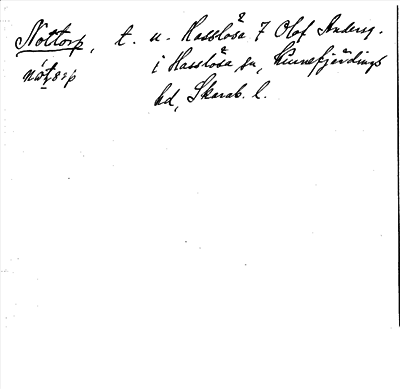 Nottorp, t. u. Hasslösa 7 Olof Andersg.
i Hasslösa sn, Kinnefjärdings
hd, Skarab. l.